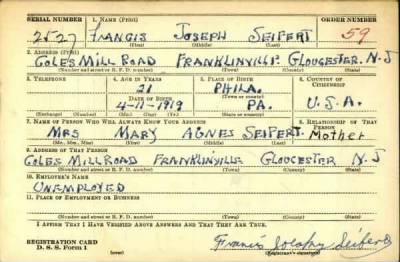 SERIAL NUMBER 1. NAME (Print) ORDER NUMBER
2527 FRANCIS JOSEPH SEIPERT 59
(First) (Middle) (Last)
2. ADDRESS (Print)
COLES MILL ROAD FRANKLINVILLE. GLOUCESTER. N.J
(Number and street or R. F. D. number) (Town) (County) (State)
3. TELEPHONE 4. AGE IN YEARS 5. PLACE OF BIRTH 6. COUNTRY OF CITIZENSHIP
21 PHILA.
DATE OF BIRTH (Town or county)
4-11-1919 PA. U.S.A.
(Exchange) (Number) (Mo.) (Day) (Yr.) (State or country)
7. NAME OF PERSON WHO WILL ALWAYS KNOW YOUR ADDRESS 8. RELATIONSHIP OF THAT PERSON
MRS MARY AGNES SEIPERT. Mother
(Mr., Mrs., Miss) (First) (Middle) (Last)
9. ADDRESS OF THAT PERSON
COLES MILL ROAD FRANKLINVILLE GLOUCESTER N.J
(Number and street or R. F. D. number) (Town) (County) (State)
10. EMPLOYER'S NAME
UNEMPLOYED
11. PLACE OF EMPLOYMENT OR BUSINESS
(Number and street or R. F. D. number) (Town) (County) (State)
I AFFIRM THAT I HAVE VERIFIED ABOVE ANSWERS AND THAT THEY ARE TRUE.
REGISTRATION CARD
D. S. S. Form 1 (over) (Registrant's signature)
Francis Joseph Seibert